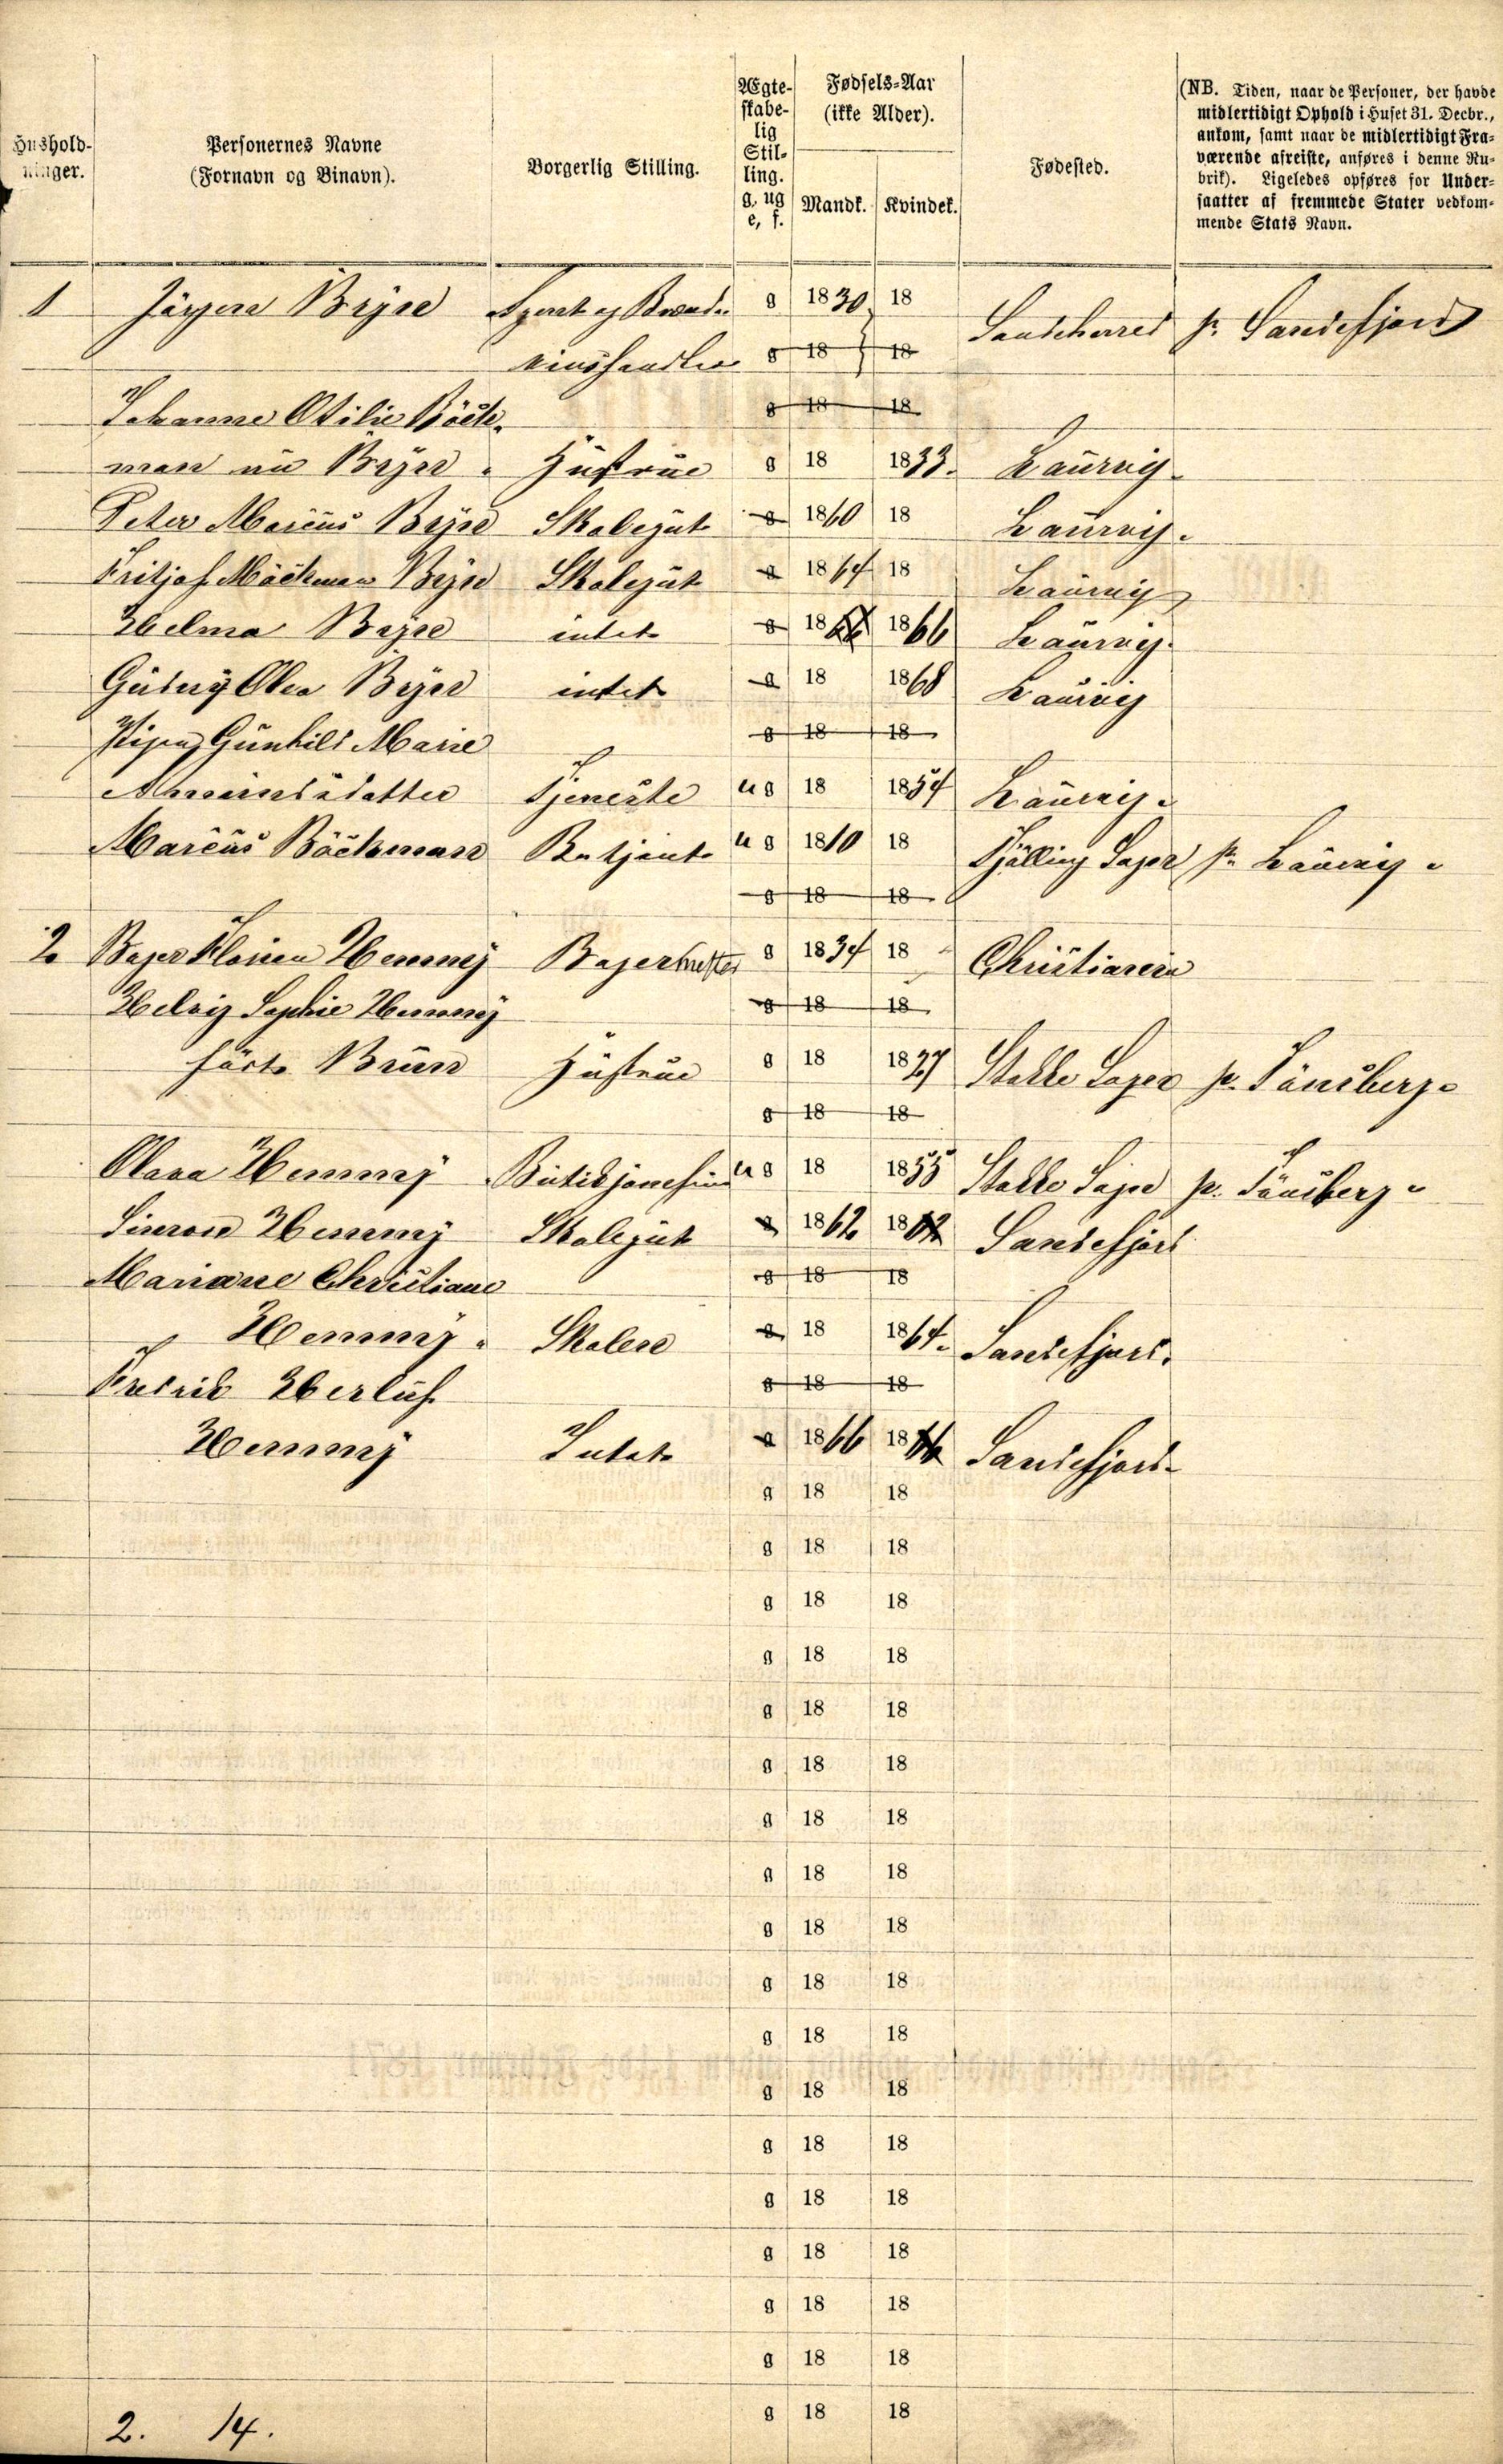 Hushold-
ninger.
Personernes Navne
(Fornavn og Binavn).
Borgerlig Stilling.
Ægte-
skabe-
lig
Stil-
ling.
g, ug
e, f.
Fødsels-Aar
(ikke Alder).
Mandk. Kvindek.
Fødested.
(NB. Tiden, naar de Personer, der havde
midlertidigt Ophold i Huset 31. Decbr.,
ankom, samt naar de midlertidigt Fra-
værende afreiste, anføres i denne Ru-
brik). Ligeledes opføres for Under-
saatter af fremmede Stater vedkom-
mende Stats Navn.
1 Jörgen Bryn Agent og Brænde g 1830 18 Sandeherred pr. Sandefjord
vinshandler g 18 18
Johanne Otilie Böck- g 18 18
man Bryn. Hüstrüe g 18 1833. Laürvig.
Peter Marcüs Bryn Skolegüt g 1860 18 Laürvig.
Fritjof Bryn Skolegüt g 1864 18 Laürvig
Helma Bryn intet g 18 1866 Laürvig.
Olea Bryn intet g 18 1868 Laürvig
Pigen Günhild Marie g 18 18
Tjeneste ug 18 1854 Laürvig.
Marcüs Böckman Betjent ug 1810 18 Tjölling Sogn pr. Laürvig.
g 18 18
2 Bager Hemmy Bagermester g 1834 18 Christiania
Helvig Sophie Hemmy g 18 18
födt Brün Hüstrüe g 18 1827 Stokke Sogn pr. Tönsberg.
g 18 18
Olava Hemmy ug 18 1855 Stokke Sogn pr. Tönsberg.
Simon Hemmy Skolegüt g 1862 1862 Sandefjord
Mariane Christiane g 18 18
Hemmy. Skolen g 18 1864. Sandefjord.
Fredrik Herlüf g 18 18
Hemmy Intet g 1866 1866 Sandefjord.
g 18 18
g 18 18
g 18 18
g 18 18
g 18 18
g 18 18
g 18 18
g 18 18
g 18 18
g 18 18
g 18 18
g 18 18
g 18 18
g 18 18
g 18 18
g 18 18
g 18 18
g 18 18
2. 14.